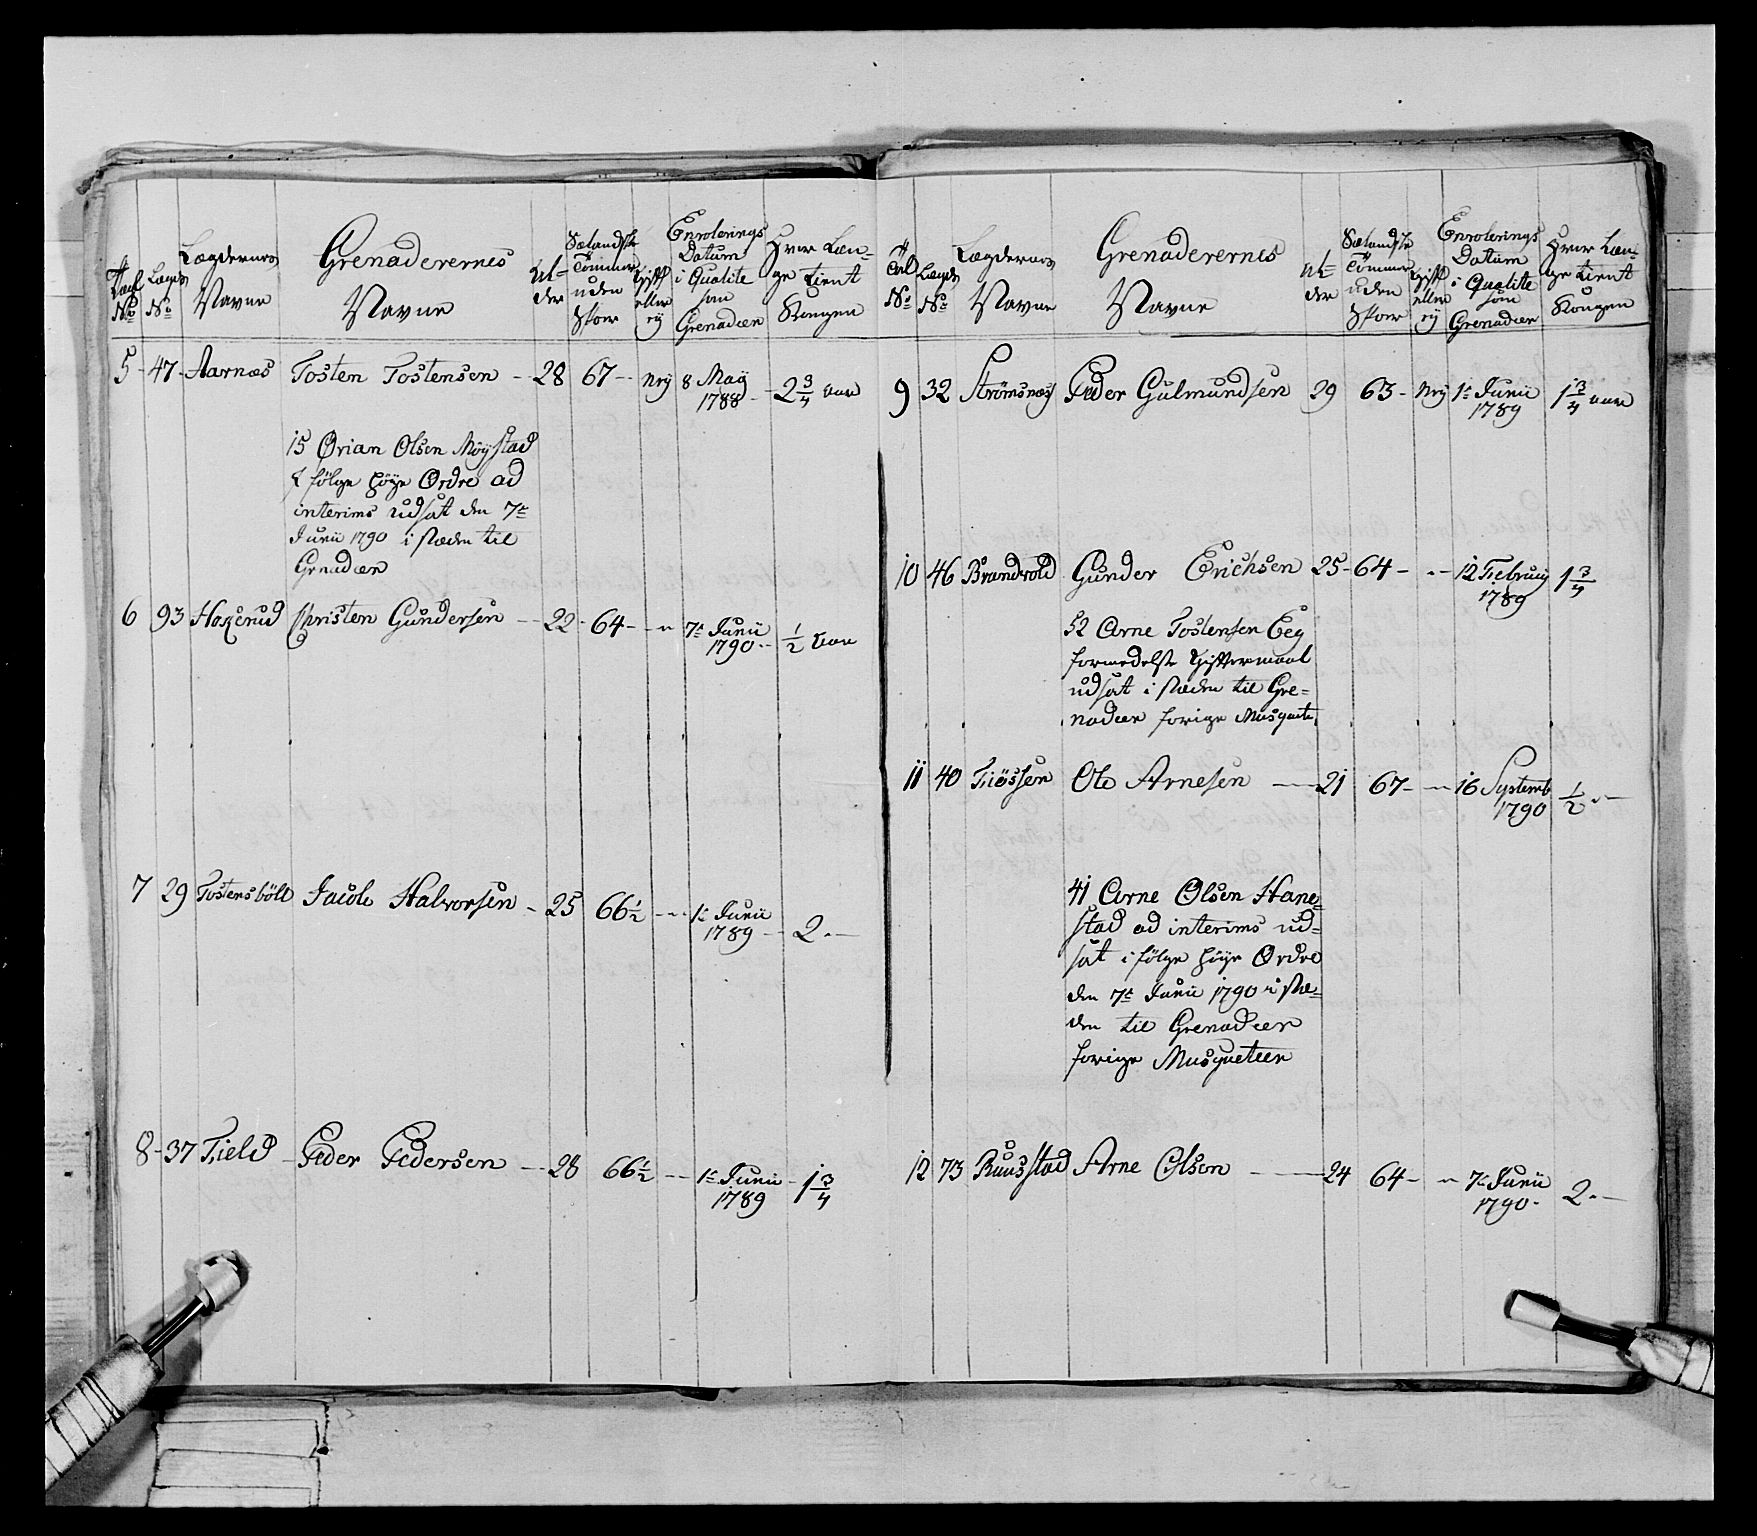 Tal No
Lægds No
Lægdernes Navne
Grenaderernes Navne
Alder
Sælandske Tommer uden Skoer
Gift eller ey
Enrolerings Datum i Qualite som Grenadeer
Hvor Længe tient Kongen
5 - 47 - Aarnæs Tosten Tostensen - 28 67 - Ney 8 May 1788 - 2 3/4 aar
15 Ørian Olsen Møystad
følge høye Ordre ad
interims udsat den 7te
Junii 1790 i stæden til
Grenadeer
6 93 Haxerud Christen Gundersen - 22 - 64 - - " 7te Junii 1790 - 1/2 aar
7 29 Tostensböll Jacob Halvorsen - 25 66 1/2 - - " 1te Junii 1789 - 2 . -
8 - 37 Field - Peder Pedersen - 28 66 1/2 - - 1te Junii 1789 - 1 3/4
Tal No
Lægds No
Lægdernes Navne
Grenaderernes Navne
Alder
Sælandske Tommer uden Skoer
Gift eller ey
Enrolerings Datum i Qualite som Grenadeer
Hvor Længe tient Kongen
9 32 Strömsnæs Peder Gulmundsen 29 63 - Ney 1te Junii 1789 1 3/4 aar
10 46 Brandvold Gunder Erichsen 25 - 64 - " - 12 Februarij 1789 1 3/4
52 Arne Tostensen Eeg
formedelst Giftermaal
udsat i stæden til Gre=
nadeer forige Musquete
11 40 Tiössen Ole Arnesen - 21 67 - - " - 16 Septemb 1790 1/2 " -
41 Arne Olsen Hane=
stad ad interims ud=
sat i følge høye Ordre
den 7te Junii 1790 i stæ=
den til Grenadeer
forige Musqueteer
12 73 Ruusstad Arne Olsen - 24 64 - - " - 7te Junii 1790 - 2 . -